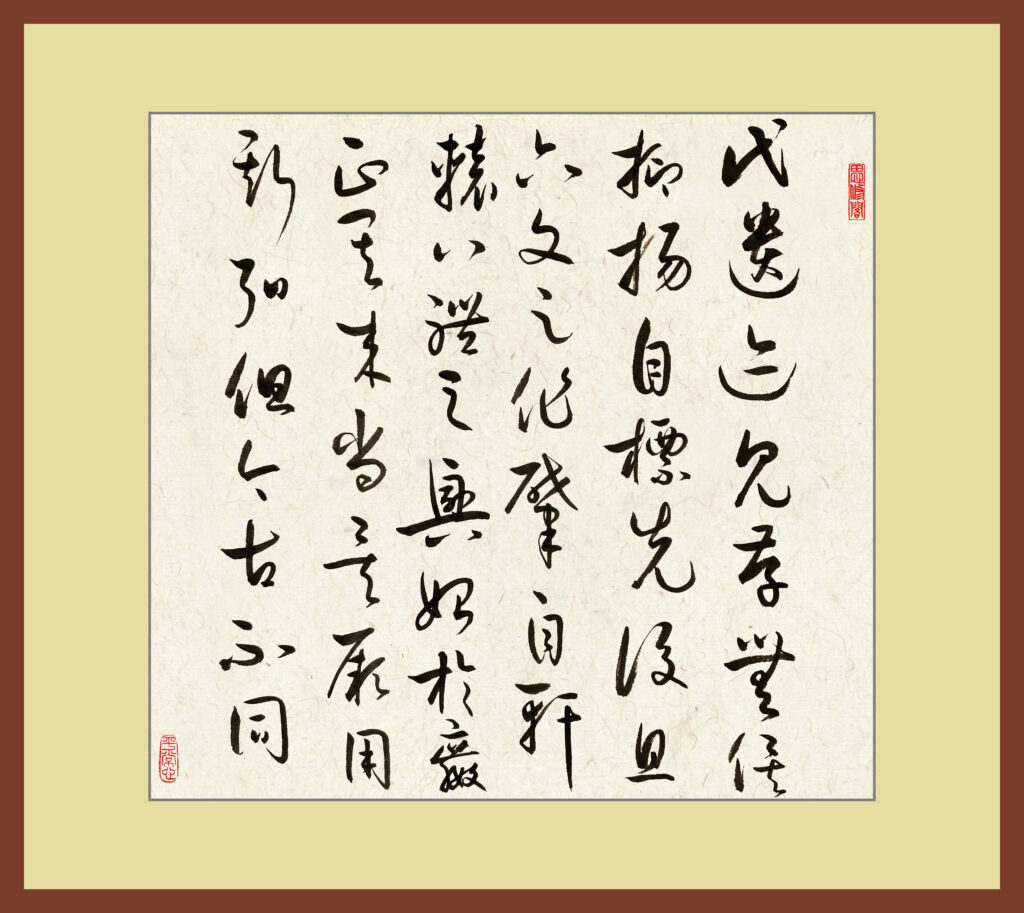 代遺迹見存無俟
抑揚自標先後且
六文之作肇自軒
轅八體之興始於嬴
正其来尚矣厥用
斯弘但今古不同
平常心